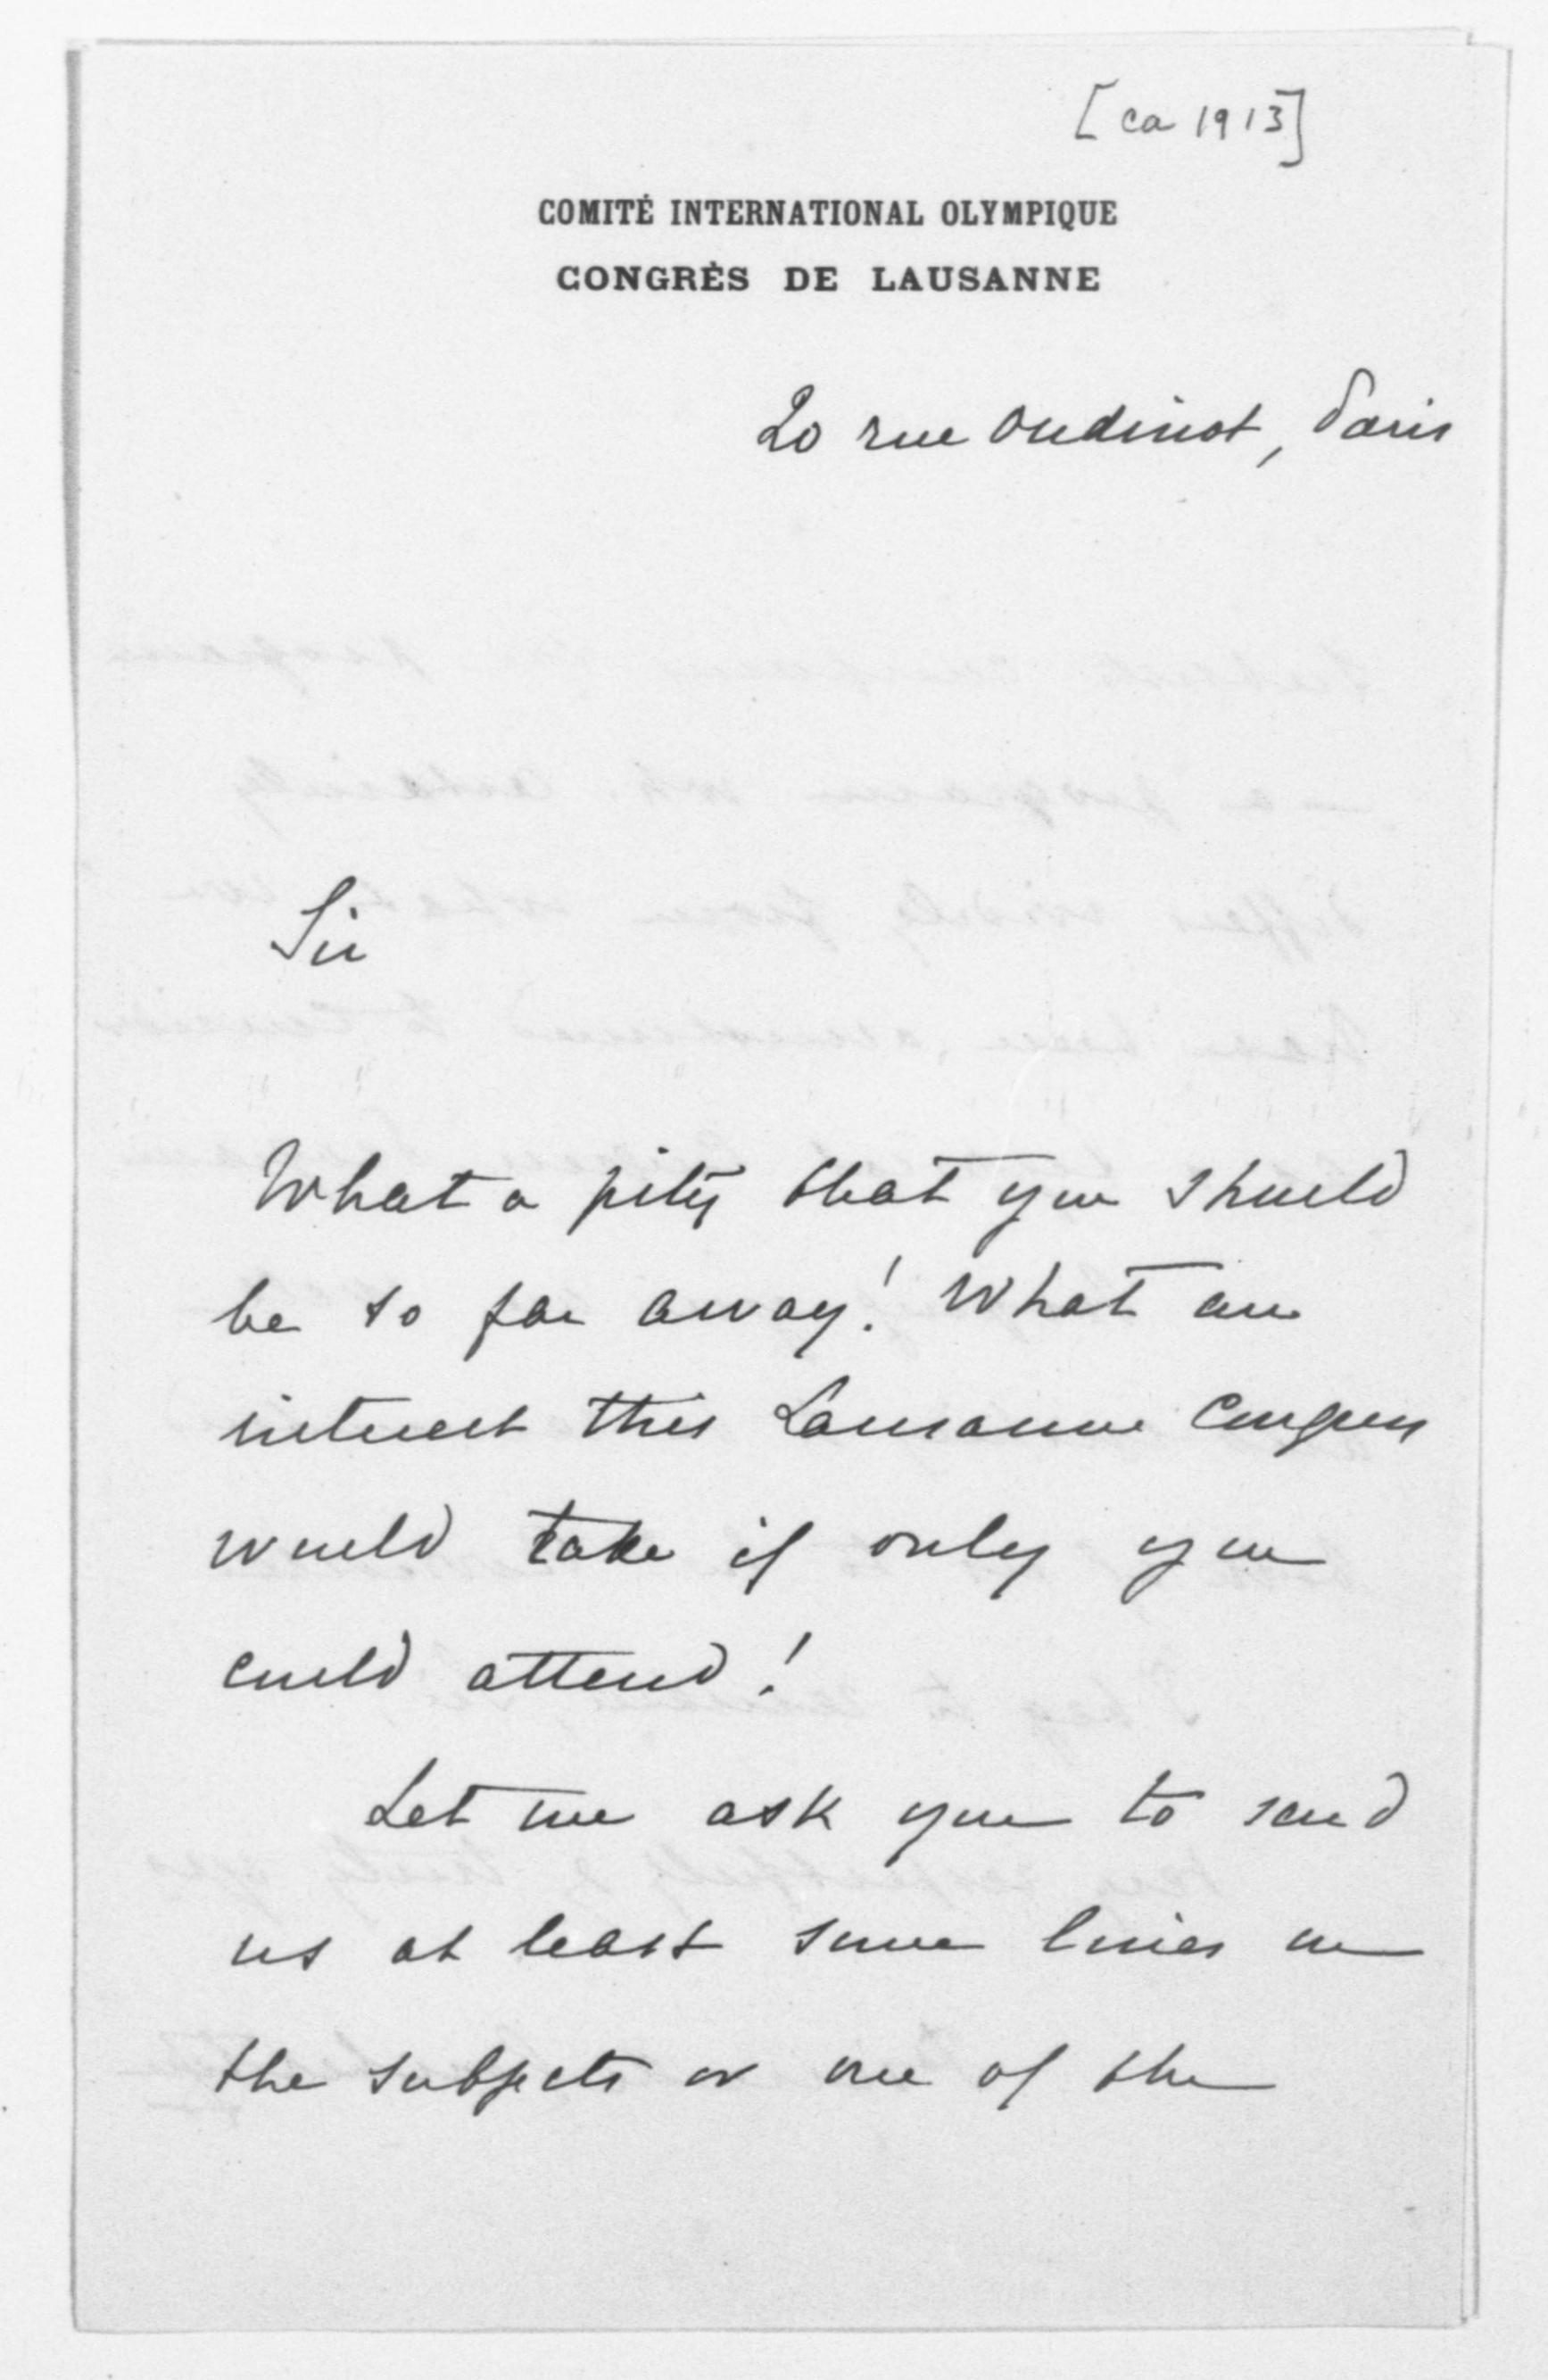 [ca 1913]
COMITÉ INTERNATIONAL OLYMPIQUE
CONGRÈS DE LAUSANNE
20 rue Oudinot, Paris
Sir
What a pity that you should
be so far away! What an
interest this Lausanne Congress
would take if only you
could attend!
Let me ask you to send
us at least some lines on
the subjects or one of the